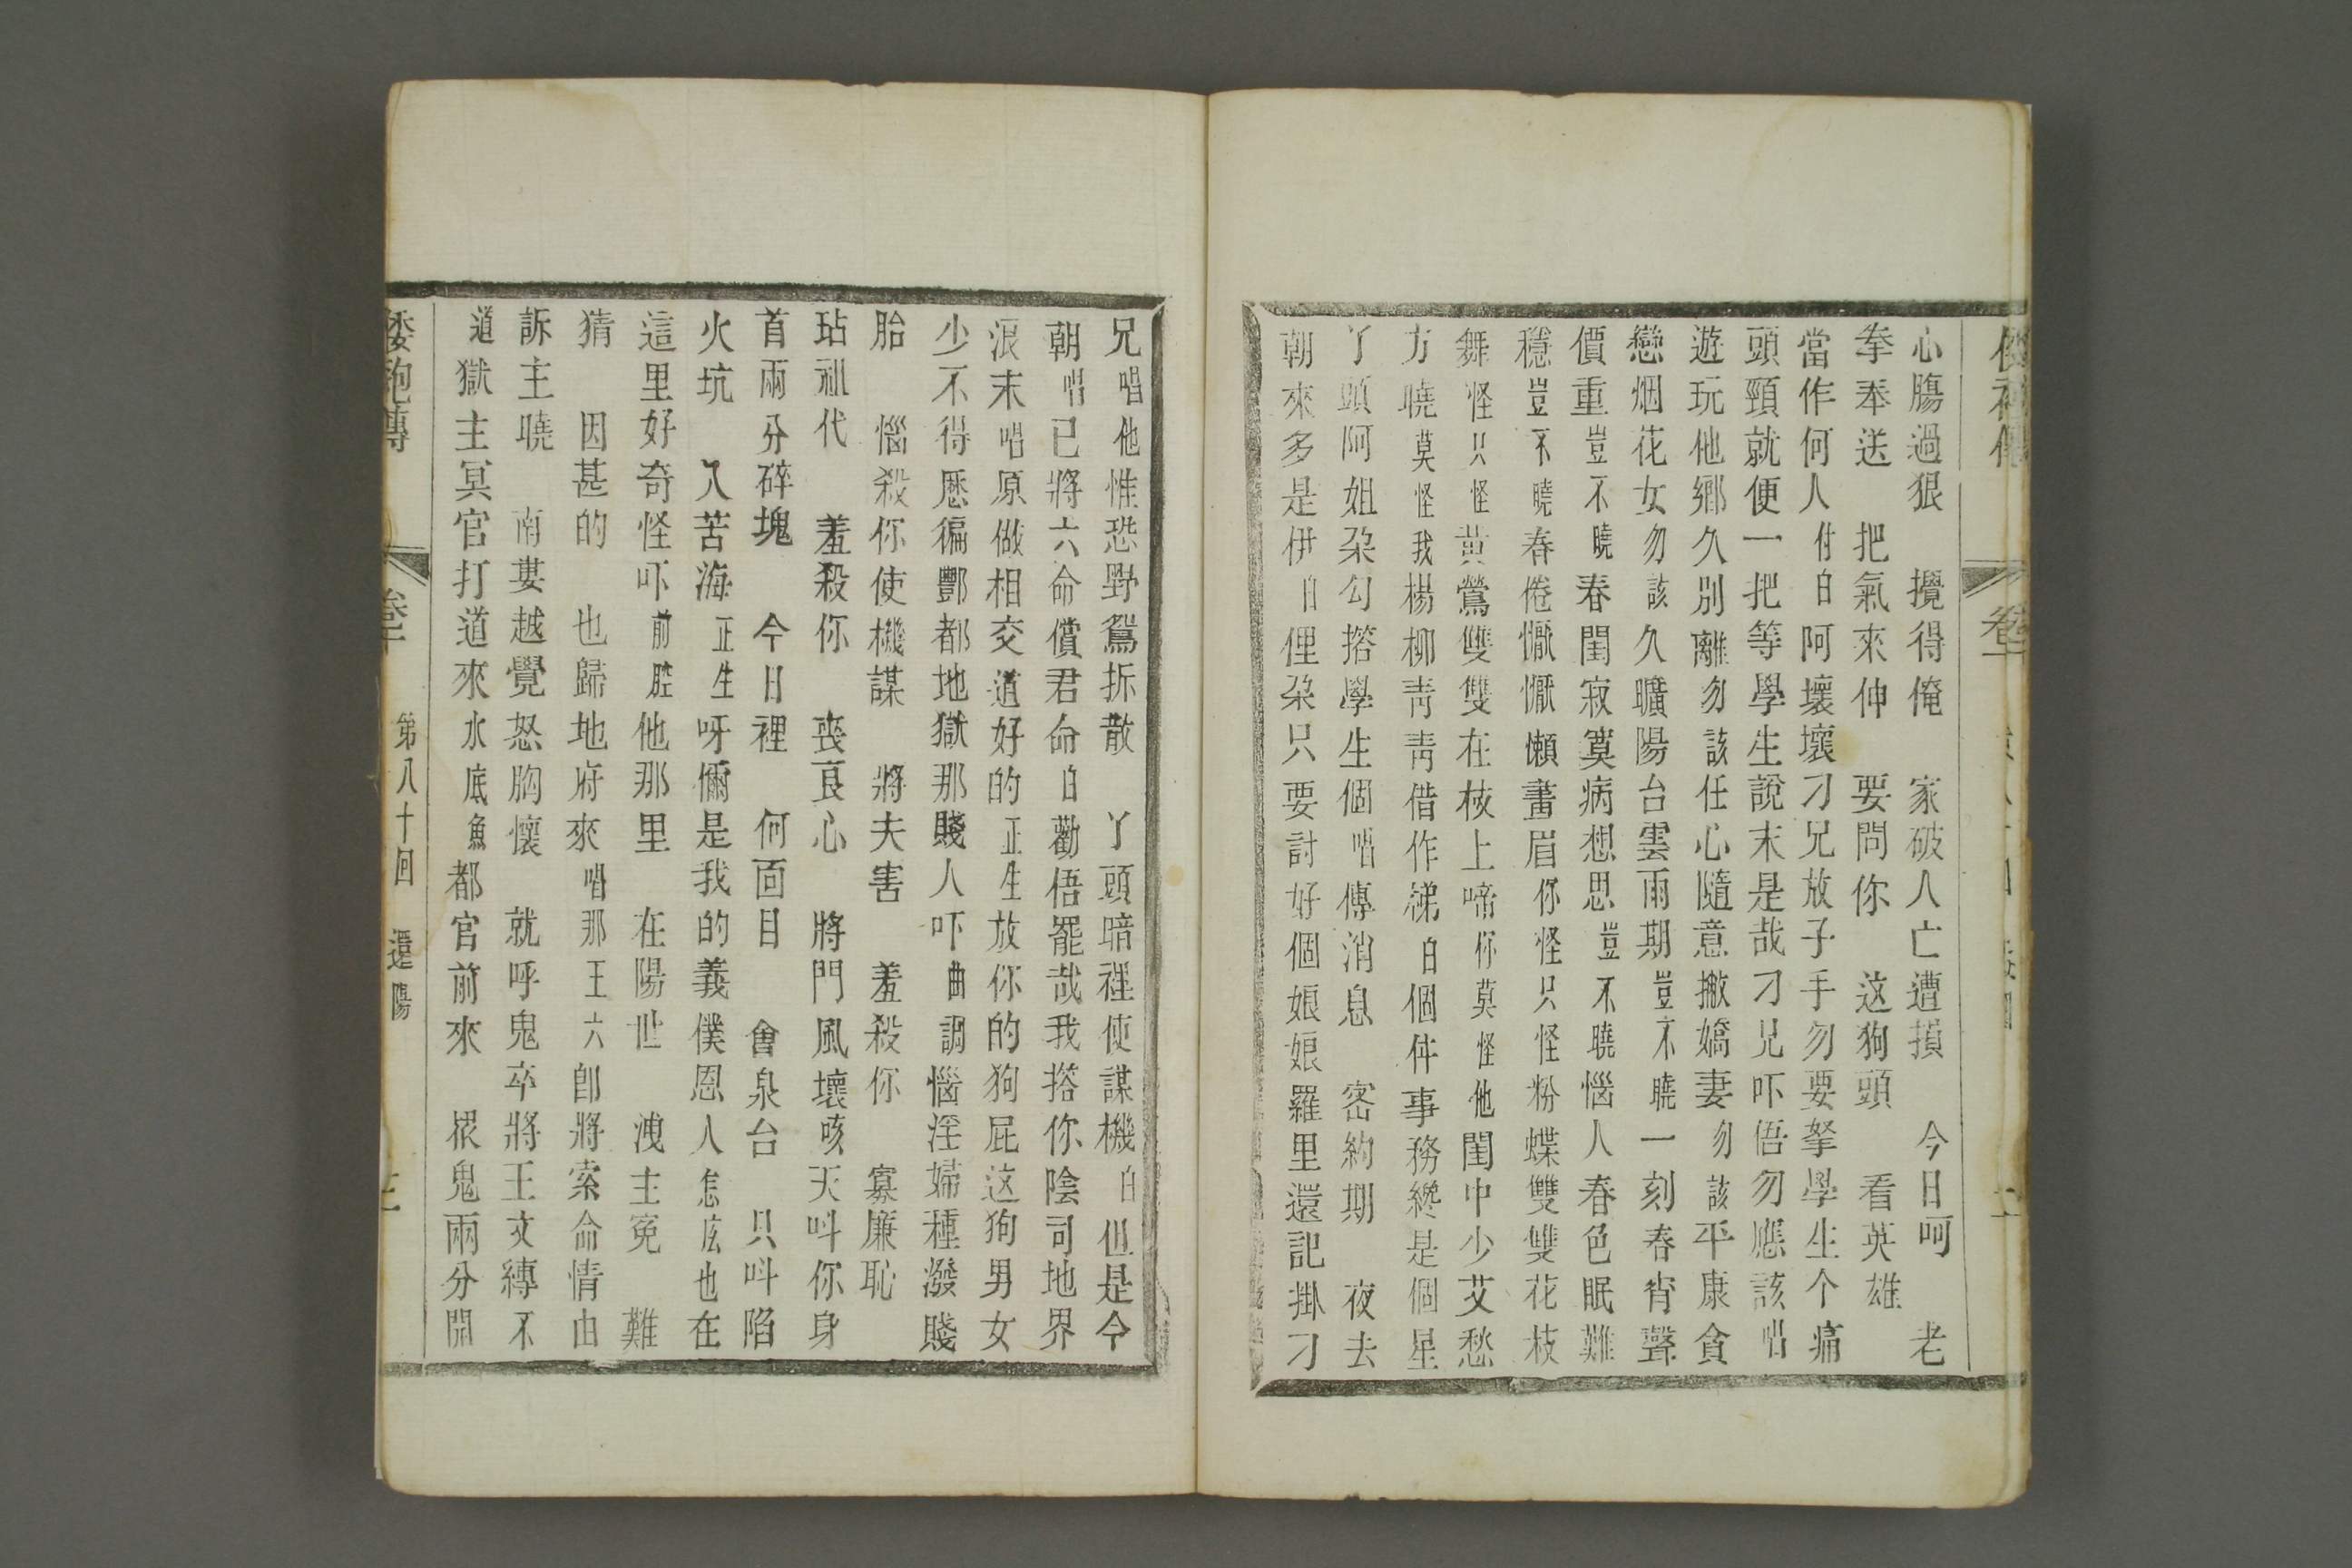 心膓過狠　攪得俺　家破人亡遭損　今日呵　老
拳奉送　把氣來伸　要問你　这狗頭　看英雄
當作何人付白阿壞壞刁兄放子手勿要拏學生个痛
頭頸就便一把等學生說末是哉刁兄吓倍勿應該唱
遊玩他鄉久別離勿該任心隨意撇嬌妻勿該平康貪
戀烟花女勿該久曠陽台雲雨期豈不曉一刻春宵聲
價重豈不曉春閨寂寞病想思豈不曉惱人春色眠難
穩豈不曉春倦懨懨懶畫眉你怪只怪粉蝶雙雙花枝
舞怪只怪黃鶯雙雙在枝上啼你莫怪他閨中少艾愁
方曉莫怪我楊柳靑靑借作梯白個件事務纔是個星
丫頭阿姐朶勾搭學生個唱傳消息　密約期　夜去
朝來多是伊白俚朶只要討好個娘娘羅里還記掛刁
兄唱他惟恐野鴛拆散　丫頭暗裡使謀機白但是今
朝唱已將六命償君命白勸倍罷哉我搭你陰司地界
浪末唱原做相交道好的正生放你的狗屁这狗男女
少不得愿徧酆都地獄那賤人吓曲調惱淫婦種潑賤
胎　惱殺你使機謀　將夫害　羞殺你　寡廉恥
玷祖代　羞殺你　喪良心　將門風壞咳天呌你身
首兩分碎塊　今日裡　何面目　會泉台　只呌陷
火坑　入苦海正生呀儞是我的義僕恩人怎庅也在
這里好奇怪吓前腔他那里　在陽世　洩主冤　難
猜　因甚的　也歸地府來唱那王六卽將索命情由
訴主曉　南婁越覺怒胸懷　就呼鬼卒將王文縛不
道獄主冥官打道來水底魚都官前來　眾鬼兩分開
倭袍傳
第八十回　還陽